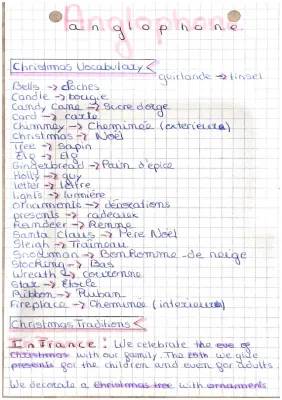 Anglophone
anglophone
Christmas Vocabulary
guirlande → tinsel
Bells → cloches
Candle → bougie
Candy Cane → Sucre d'orge
Card → carte
Chimney → Cheminée (exterieure)
Christmas → Noël
Tree → Sapin
Elf → Elf
Gingerbread → Pain d'épice
Holly → guy
letter → lettre
lights → lumière
ornaments → décorations
presents → cadeaux
Reindeer → Renne
Santa Claus → Père Noël
Sleigh → Traîneau
Snowman → Bonhomme de neige
Stocking → Bas
Wreath → couronne
Star → Etoile
Ribbon → Ruban
Fireplace → Cheminee (interieure)
Christmas Traditions
In France: We celebrate the eve of
Christmas with our family. The 25th we give
presents for the children and even for adults
We decorate a christmas tree with ornaments